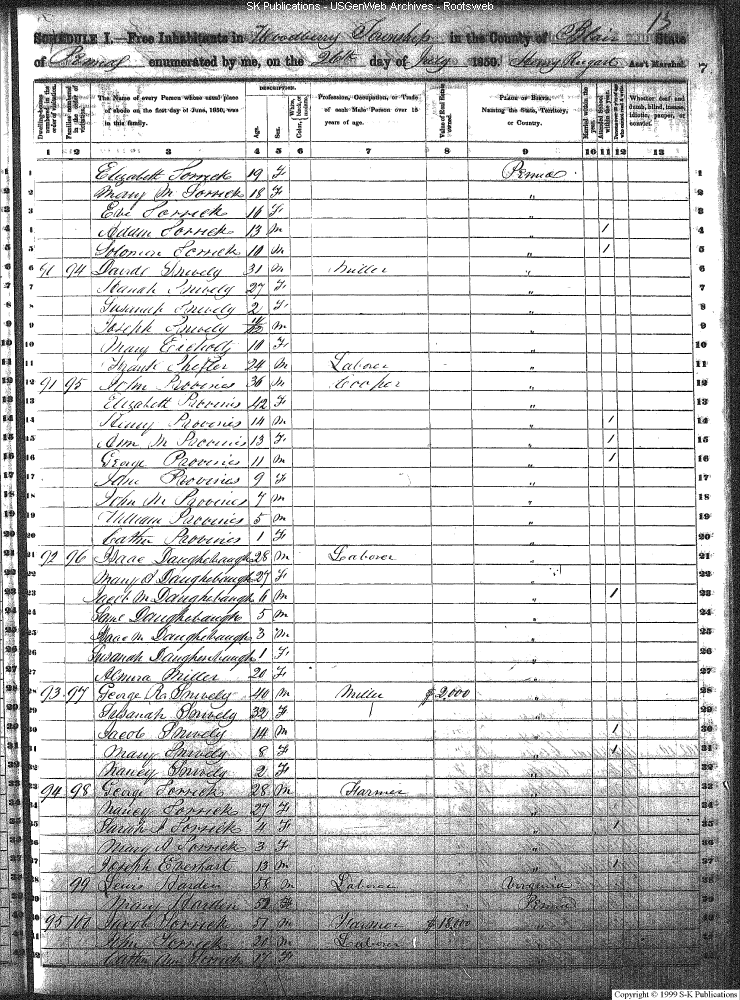 SK Publications - USGenWeb Archives - Rootsweb
13
SCHEDULE I.—Free Inhabitants in Woodbury Township in the County of Blair State
of Penna enumerated by me, on the 26th day of July 1850. Henry Ass't Marshal. 7
DESCRIPTION.
Dwelling-houses numbered in the order of visitation.
Families numbered in the order of visitation.
The Name of every Person whose usual place of abode on the first day of June, 1850, was in this family.
Age.
Sex.
Color,
Profession, Occupation, or Trade of each Male Person over 15 years of age.
Value of Real Estate owned.
PLACE OF BIRTH, Naming the State, Territory, or Country.
Married within the year.
Attended School within the year.
Whether deaf and dumb, blind, insane, idiotic, pauper, or convict.
1 2 3 4 5 6 7 8 9 10 11 12 13
1 Elizabeth Sorrick 19 F Penna 1
2 Mary M Sorrick 18 F " 2
3 Sorrick 16 F " 3
4 Adam Sorrick 13 M " 1 4
5 Solomon Sorrick 10 M " 1 5
6 91 94 Snively 31 M Miller " 6
7 Hanah Snively 27 F " 7
8 Susanah Snively 2 F " 8
9 Joseph Snively M " 9
10 Mary 10 F " 10
11 24 M Laborer " 11
12 91 95 John Provines 36 M Cooper " 12
13 Elizabeth Provines 42 F " 13
14 Henry Provines 14 M " 1 14
15 Ann M Provines 13 F " 1 15
16 George Provines 11 M " 1 16
17 Provines 9 F " 17
18 John M Provines 7 M " 18
19 William Provines 5 M " 19
20 Cathn Provines 1 F " 20
21 92 96 Isaac Daughebaugh 28 M Laborer " 21
22 Mary A Daughebaugh 27 F " 22
23 Jacob M Daughebaugh 6 M " 1 23
24 Daughebaugh 5 M " 24
25 Isaac M Daughebaugh 3 M " 25
26 Susanah Daughenbaugh 1 F " 26
27 Almira Miller 20 F " 27
28 93 97 George R Snively 40 M Miller $2,000 " 28
29 Susanah Snively 32 F " 29
30 Jacob Snively 14 M " 1 30
31 Mary Snively 8 F " 1 31
32 Nancy Snively 2 F " 32
33 94 98 George Sorrick 28 M Farmer " 33
34 Nancy Sorrick 27 F " 34
35 Sarah J Sorrick 4 F " 1 35
36 Mary A Sorrick 3 F " 36
37 Joseph Eberhart 13 M " 1 37
38 99 Lewis Harden 58 M Laborer Virginia 38
39 Mary Harden 52 F Penna 39
40 95 100 Jacob Sorrick 51 M Farmer $18,000 " 40
41 John Sorrick 20 M Laborer " 41
42 Cathn Ann Sorrick 17 F " 42
Copyright © 1999 S-K Publications